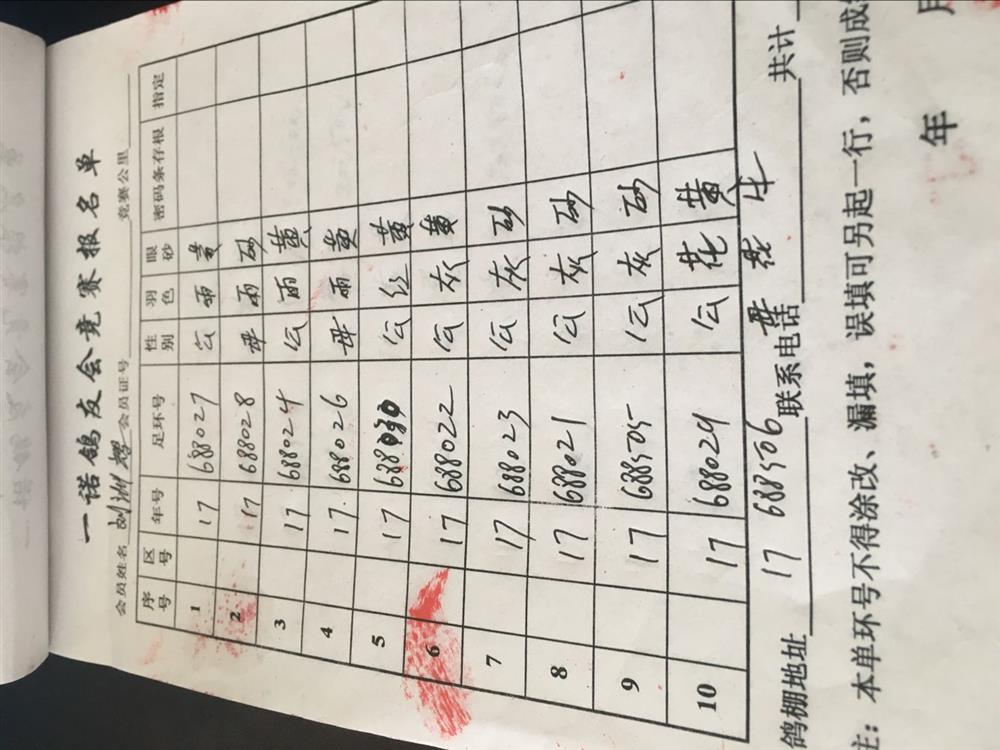 一诺鸽友会竞赛报名单
会员姓名 刘洲 会员证号 竞赛公里
序号 区号 年号 足环号 性别 羽色 眼砂 密码条存根 指定
1 17 688027 公 雨 黄
2 17 688028 母 雨 砂
3 17 688024 公 雨 黄
4 17 688026 母 雨 黄
5 17 688030 公 红 黄
6 17 688022 公 灰 黄
7 17 688023 公 灰 砂
8 17 688021 公 灰 砂
9 17 688505 公 灰 砂
10 17 688029 公 花 黄
17 688506 母 花 牛
鸽棚地址 联系电话 共计
注：本单环号不得涂改、漏填，误填可另起一行，否则成
年 月